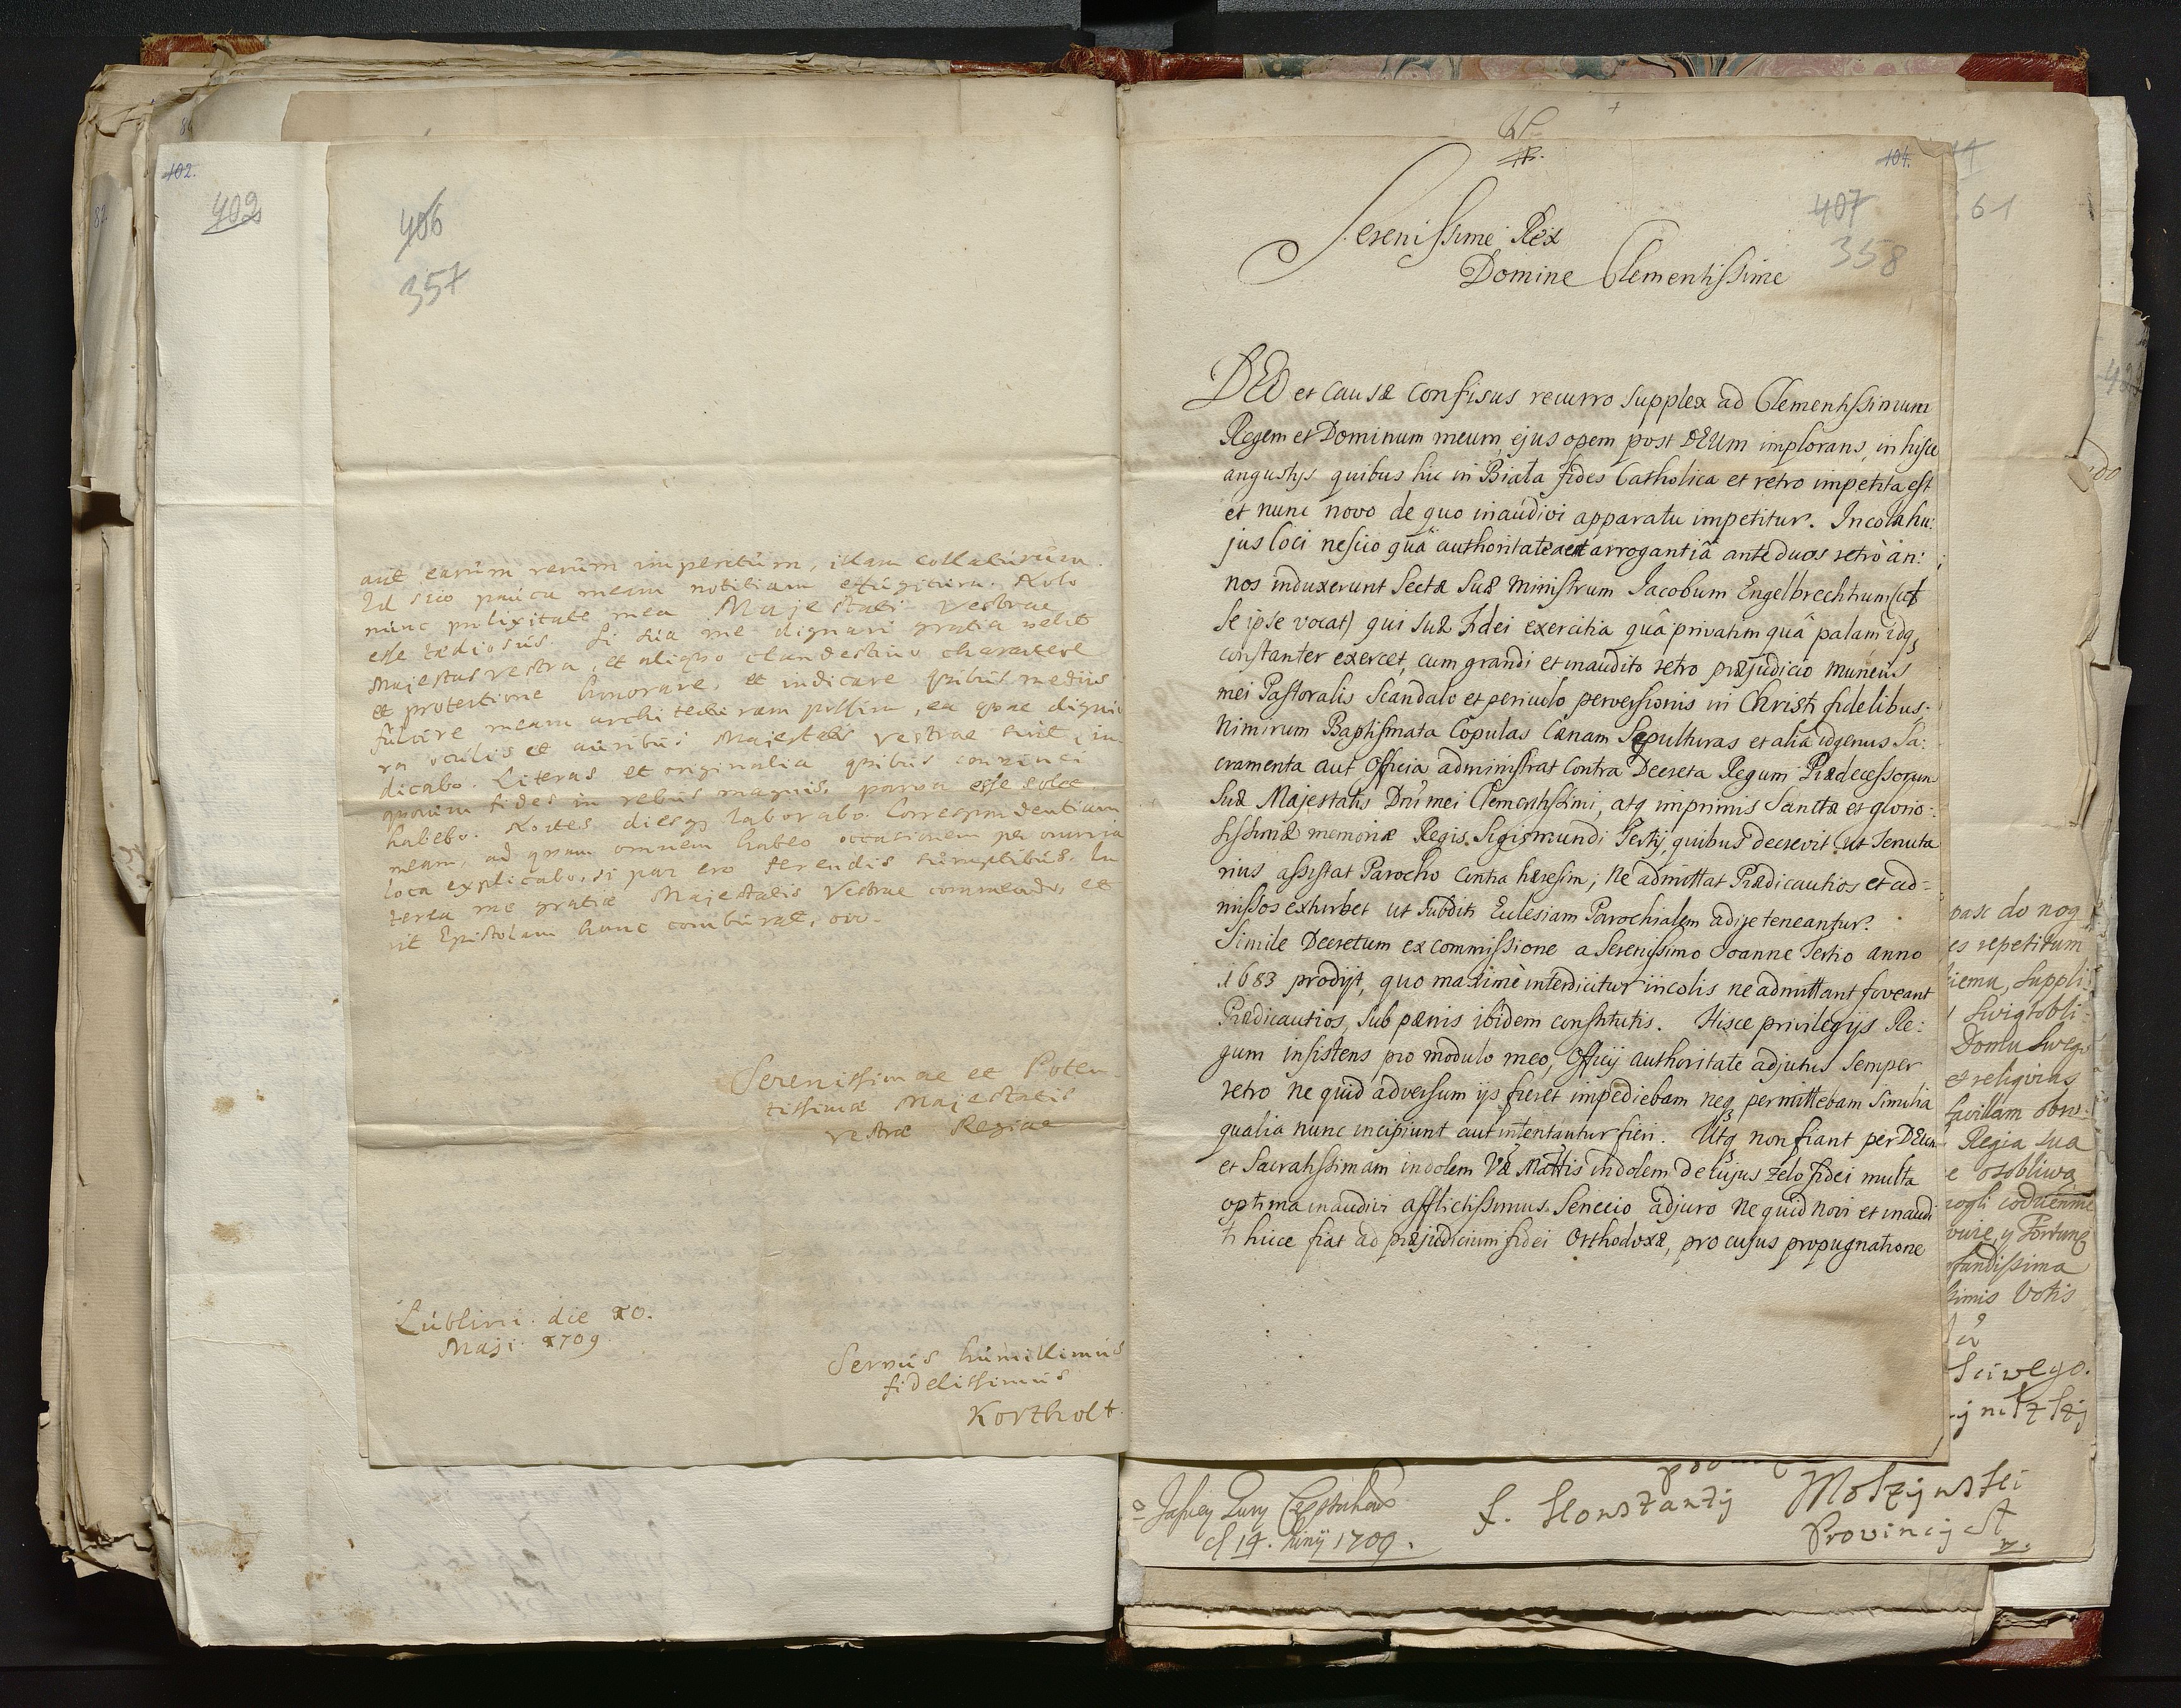 102.
402
406
357
aut earum rerum imperitum, illam collaturum.
Id scio pauca meam notitiam effugitura. Nolo
nunc prolixitate mea Majestati vestrae
esse taediosus. Si sua me dignari gratia velit
Majestas vestra, et aliquo clandestino charactere
et protectione honorare, et indicare quibus mediis
fulcire meam architecturam possim, ea quae digni
ra oculis et auribus Majestatis vestrae sint, in
dicabo. Literas et originalia quibus convinci
quorum fides in rebus magnis parva esse solet
habebo. Noctes diesq laborabo. Correspondentiam
meam, ad quam omnem habeo occasionem per omnia
loca explicabo, si par ero ferendis sumptibus. In
terea me gratiae Majestatis Vestrae commendo, et
ut Epistolam hanc comburat, oro.
Serenissimae et Poten
tissimae Majestatis
vestrae Regiae
Lublini die 20.
Maji 1709.
Servus humillimus
fidelissimus
Kortholt.
104.
407
358
61
Serenissime Rex
Domine Clementissime
DEO et causæ confisus recurro supplex ad Clementissimum
Regem et Dominum meum, ejus opem post DEUm implorans, in hisce
angustys quibus hic in Biała fides Catholica et retro impetita est
et nunc novo de quo inaudivi apparatu impetitur. Incolæ hu:
jus loci nescio quâ authoritate aut arrogantiâ ante duos retrò an:
nos induxerunt Sectæ suæ Ministrum Jacobum Engelbrechtum (ut
se ipse vocat) qui suæ Fidei exercitia quâ privatim quâ palam idq
constanter exercet, cum grandi et inaudito retro præjudicio muneris
mei Pastoralis Scandalo et periculo perversionis in Christi fidelibus.
Nimirum Baptismata Copulas Cænam Sepulturas et alia idgenus Sa:
cramenta aut Officia administrat contra Decreta Regum Prædecessorum
Suæ Majestatis Dni mei Clementissimi, atq imprimis Sanctæ et glorio:
sissimæ memoriæ Regis Sigismundi Tertij, quibus decrevit ut Tenuta
rius assistat Parocho contra hæresim; Ne admittat Prædicantios et ad:
missos exturbet ut Subditi Ecclesiam Parochialem adire teneantur.
Simile Decretum ex commissione a Serenissimo Joanne Tertio anno
1683 prodijt, quo maximè interdicitur incolis ne admittant foveant
Prædicantios, sub pænis ibidem constitutis. Hisce privilegijs Re:
gum insistens pro modulo meo, Officij authoritate adjutus semper
retro ne quid adversum ijs fieret impediebam neq permittebam similia
qualia nunc incipiunt aut intentantur fieri. Utq non fiant per DEUm
et Sacratissimam indolem Væ Mattis indolem de cujus zelo fidei multa
optima inaudivi afflictissimus Senecio adjuro ne quid novi et inaudi
ti hicce fiat ad præjudicium fidei Orthodoxæ, pro cujus propugnatione
pasc do nog
es repetitum
iemu, suppli:
Domu Swego
et religiras
Regia sua
e osobliwą
ofundissima
simis Votis
Sciwego.
d 14. Junij 1709.
f. Konstanty Moszynski
Provincij